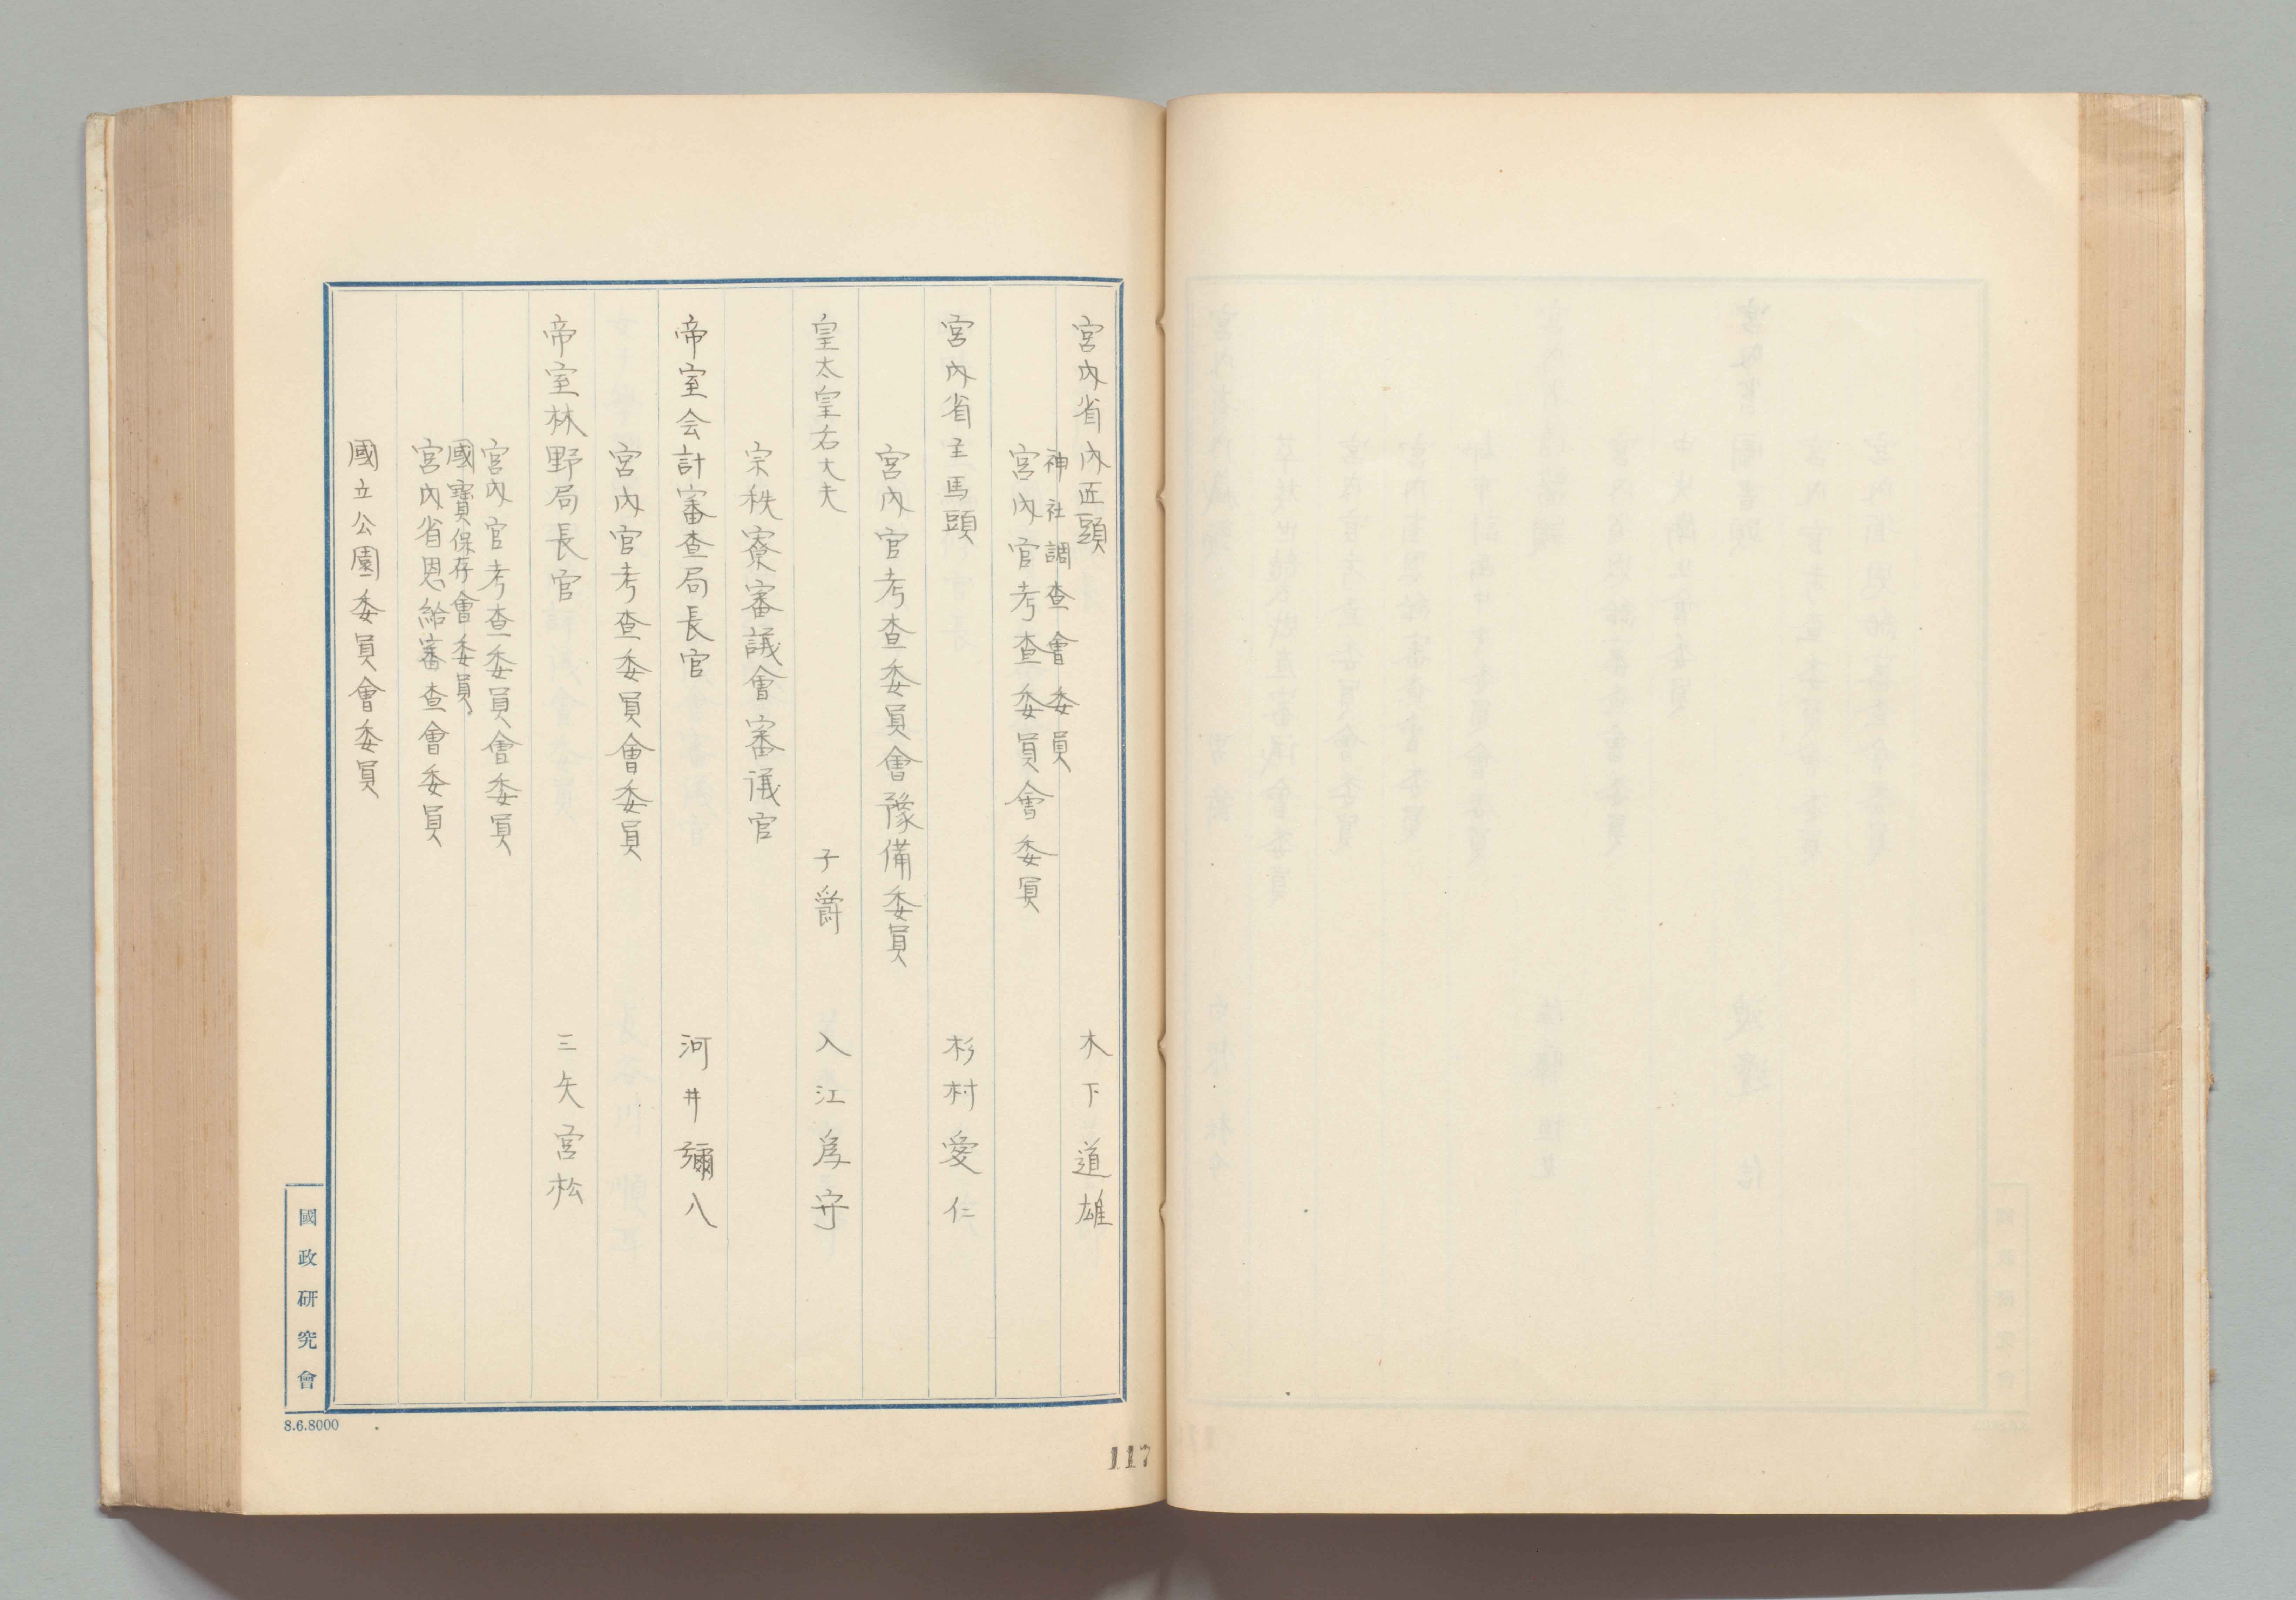 宮内省内匠頭　木下道雄
神社調査會委員
宮内官考査委員會委員
宮内省主馬頭　杉村愛仁
宮内官考査委員會豫備委員
皇太皇右大夫　子爵　入江為守
宗秩寮審議會審議官
帝室会計審査局長官　河井彌八
宮内官考査委員會委員
帝室林野局長官　三矢宮松
宮内官考査委員會委員
國寶保存會委員、
宮内省恩給審査會委員
國立公園委員會委員
國政研究會
8.6.8000
117